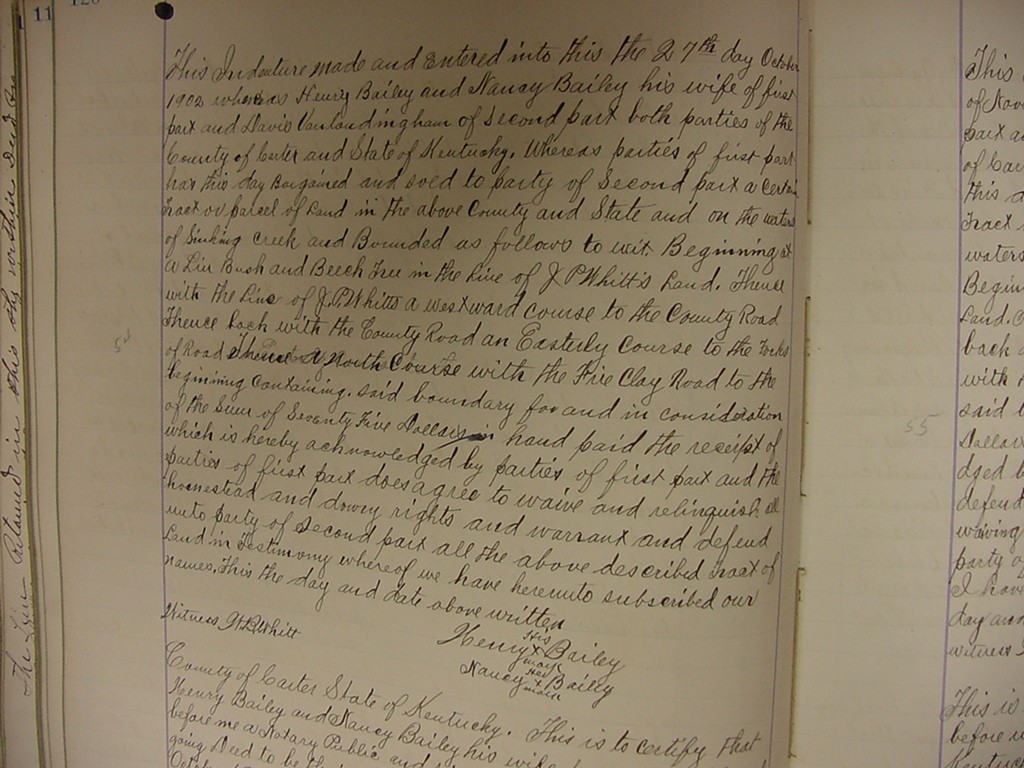 11 120
This Indenture made and Entered into this the 27th day October
1902 whereas Henry Bailey and Nancy Bailey his wife of first
part and Davis Vanlandingham of Second part both parties of the
County of Carter and State of Kentucky. Whereas parties of first part
has this day Bargained and sold to party of Second part a certain
Tract or parcel of Land in the above County and State and on the waters
of Sinking Creek and Bounded as follows to wit. Beginning at
a Lin Bush and Beech Tree in the line of J. P. Whitt's Land. Thence
with the Line of J. P. Whitts a westward course to the County Road
Thence back with the County Road an Easterly Course to the Forks
of Road Thence A North Course with the Fire Clay Road to the
beginning Containing. said boundary for and in consideration
of the Sum of Seventy Five Dollars in hand paid the receipt of
which is hereby acknowledged by parties of first part and the
parties of first part does agree to waive and relinquish all
homestead and dowry rights and warrant and defend
unto party of Second part all the above described Tract of
Land in Testimony whereof we have hereunto subscribed our
names, this the day and date above written
Witness Whitt
Henry His X mark Bailey
Nancy Her X mark Bailey
County of Carter State of Kentucky. This is to certify that
Henry Bailey and Nancy Bailey his wife
before me a Notary Public and
going Deed to be
The Lien Retained in this
55
This
of Nov
part a
of Car
this d
Tract
waters
Begin
Land.
back
with
said b
Dollar
dged b
defend
waiving
party o
I have
day and
witness
This is
before
Kentuc